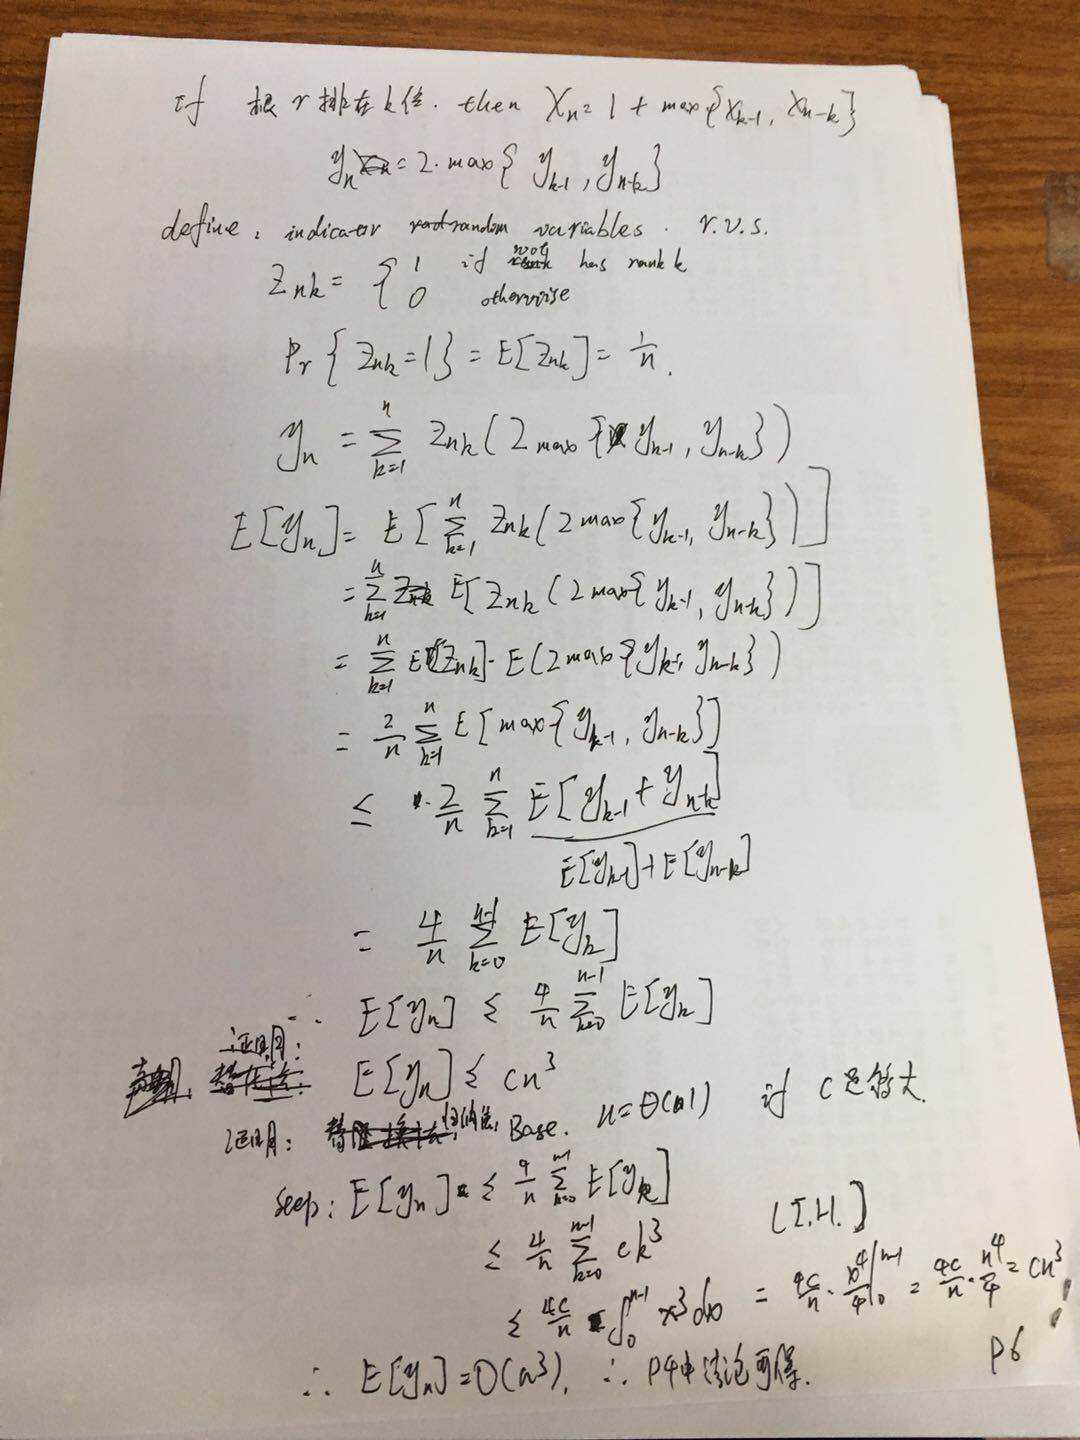 if 根 r 排在 k 位. then Xn = 1 + max{Xk-1, Xn-k}
yn = 2·max{yk-1, yn-k}
define: indicator random variables. r.v.s.
Znk = { 1 if root has rank k
0 otherwise
Pr{Znk=1} = E[Znk] = 1/n.
yn = ∑_{k=1}^{n} Znk(2max{yk-1, yn-k})
E[yn] = E[∑_{k=1}^{n} Znk(2max{yk-1, yn-k})]
= ∑_{k=1}^{n} E[Znk(2max{yk-1, yn-k})]
= ∑_{k=1}^{n} E[Znk]·E(2max{yk-1, yn-k})
= 2/n ∑_{k=1}^{n} E[max{yk-1, yn-k}]
≤ 2/n ∑_{k=1}^{n} E[yk-1 + yn-k]
E[yk-1]+E[yn-k]
= 4/n ∑_{k=0}^{n-1} E[yk]
∴ E[yn] ≤ 4/n ∑_{k=0}^{n-1} E[yk]
证明: E[yn] ≤ cn³
证明: 归纳法, Base. n=Θ(1) if c足够大.
seep: E[yn] ≤ 4/n ∑_{k=0}^{n-1} E[yk]
≤ 4/n ∑_{k=0}^{n-1} ck³ [I.H.]
≤ 4c/n ∫_0^{n-1} x³dx = 4c/n · x⁴/4 |_0^{n-1} = 4c/n · n⁴/4 = cn³
∴ E[yn]=O(n³), ∴ P4中结论可得.
P6